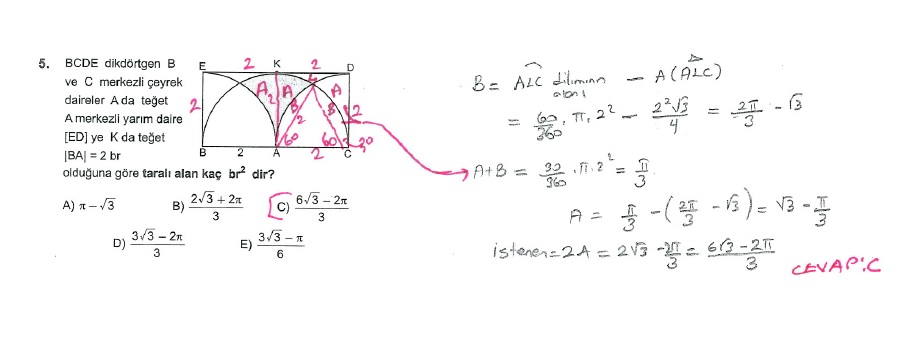 5. BCDE dikdörtgen B
ve C merkezli çeyrek
daireler A da teğet
A merkezli yarım daire
[ED] ye K da teğet
|BA| = 2 br
olduğuna göre taralı alan kaç br² dir?
A) π – √3
B) (2√3 + 2π)/3
C) (6√3 – 2π)/3
D) (3√3 – 2π)/3
E) (3√3 – π)/6
E 2 K 2 D
2 A 2 A L A 2
B B 2
60 60 30
B 2 A 2 C
B = ALC diliminin alanı – A(ALC)
= 60/360 . π . 2² – 2²√3/4 = 2π/3 – √3
A+B = 30/360 . π . 2² = π/3
A = π/3 – (2π/3 – √3) = √3 – π/3
istenen = 2A = 2√3 – 2π/3 = 6√3 – 2π/3
CEVAP:C